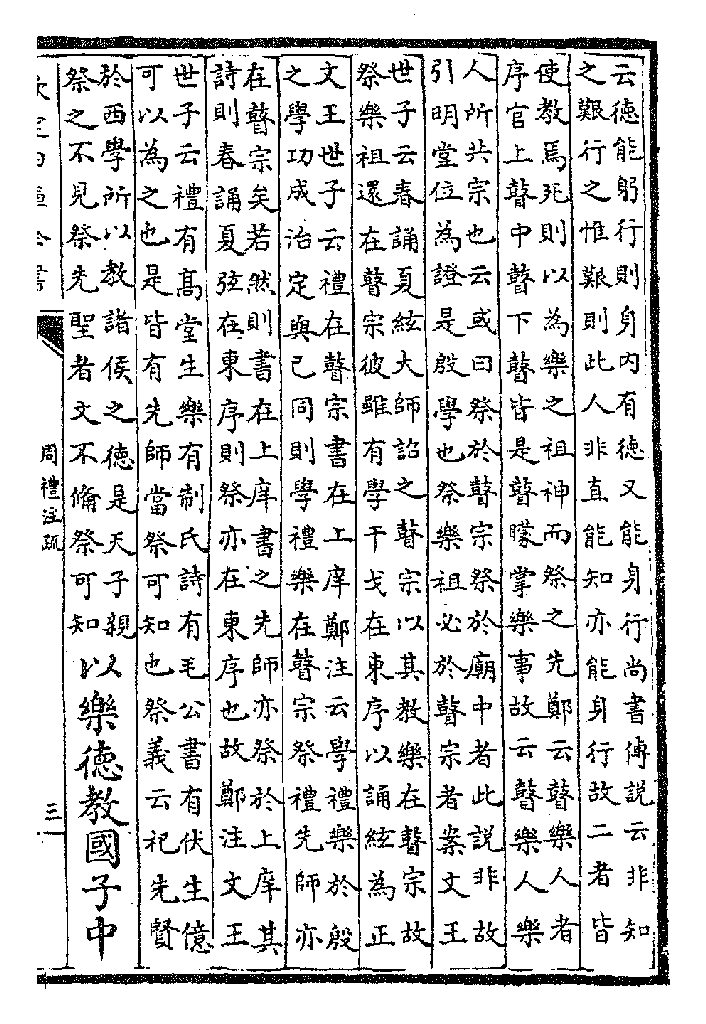 云德能躬行則身内有德又能身行尚書傅說云非知
之艱行之惟艱則此人非直能知亦能身行故二者皆
使教焉死則以為樂之祖神而祭之先鄭云瞽樂人者
序官上瞽中瞽下瞽皆是瞽矇掌樂事故云瞽樂人樂
人所共宗也云或曰祭於瞽宗祭於廟中者此說非故
引明堂位為證是殷學也祭樂祖必於瞽宗者案文王
世子云春誦夏絃大師詔之瞽宗以其教樂在瞽宗故
祭樂祖還在瞽宗彼雖有學干戈在東序以誦絃為正
文王世子云禮在瞽宗書在上庠鄭注云學禮樂於殷
之學功成治定與己同則學禮樂在瞽宗祭禮先師亦
在瞽宗矣若然則書在上庠書之先師亦祭於上庠其
詩則春誦夏弦在東序則祭亦在東序也故鄭注文王
世子云禮有髙堂生樂有制氏詩有毛公書有伏生億
可以為之也是皆有先師當祭可知也祭義云祀先賢
於西學所以教諸侯之德是天子親
祭之不見祭先聖者文不備祭可知
以樂德教國子中
周禮注疏
三